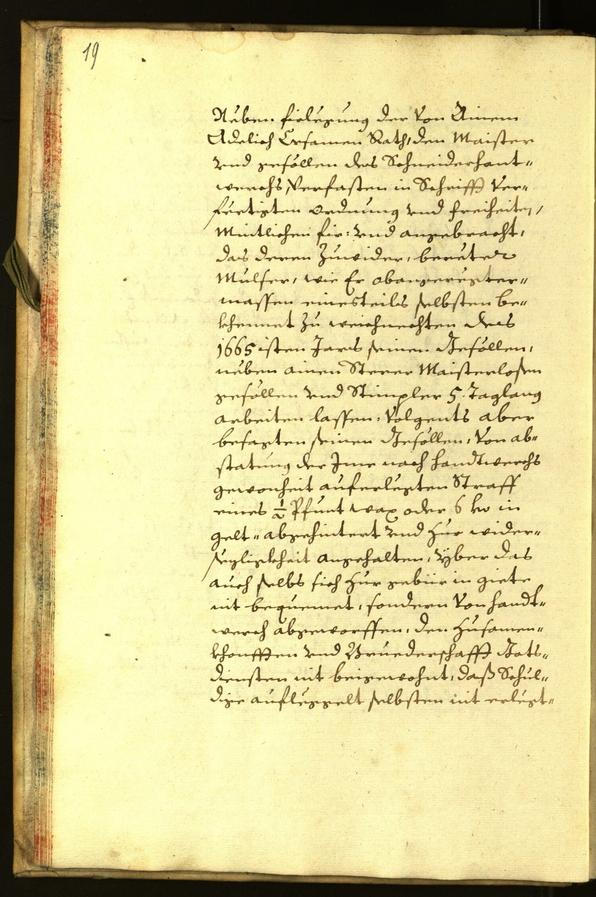 19
Neben fürlegung der von Ainem
Adelich Ersamen Rath, den Maister
und gesöllen des Schneiderhant-
werchs Verfasten in Schrifft Ver-
fertigten ordnung und freiheiten,
Mintlichen für: und angebracht,
das deren Zuwider, bereiter
Mulser, wie Er obangeregter-
massen einesteils selbsten be-
khennet zu weichnechten des
1665isten Jars seinen Gesöllen,
neben ainen Sterer Maisterlosen
gesöllen und Stimpler 5. Taglang
arbeiten lassen, Volgents aber
besagten seinen Gesöllen, Von ab-
statung der Ime nach handtwerchs
gewonheit auferlegten Straff
eines ½ Pfunt wax oder 6 kr in
gelt- abgehintert und zur wider-
sezligkheit angehalten, yber das
auch selbs sich zur gebür in giete
nit bequemet, sondern Von handt-
werch abgeworffen, den Zusamen-
khonfften und Bruederschafft Gots-
diensten nit beigewohnt, das Schul-
dige aufleggelt selbsten nit erlegt-